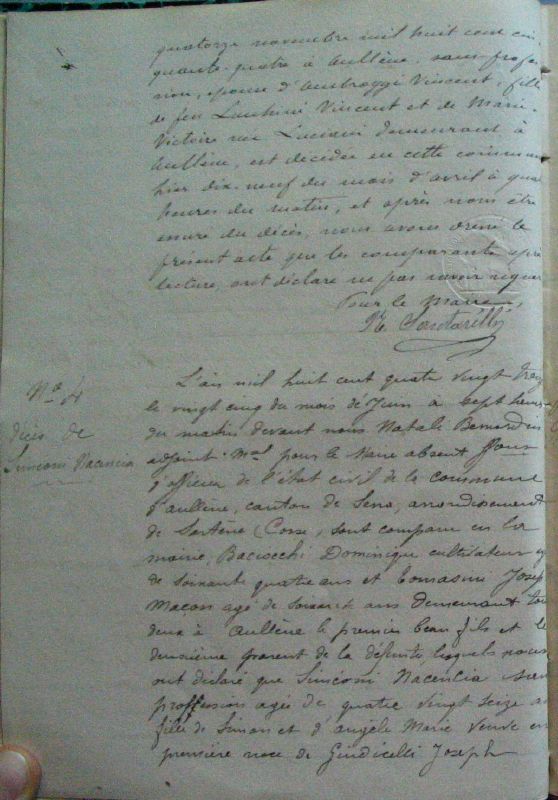 quatorze novembre mil huit cent cin
quante-quatre à Aullène, sans profes
sion, épouse d'Ambroggi Vincent, fille
de feu Lucchini Vincent et de Marie
Victoire née Luciani demeurant à
Aullène, est décédée en cette commune
hier dix-neuf du mois d'avril à qua
heures du matin, et après nous être
assuré du décès, nous avons dressé le
présent acte que les comparants après
lecture, ont déclaré ne pas savoir signer
Pour le Maire,
Santarelli
N° 4
Décès de
Simeoni Nacencia
L'an mil huit cent quatre vingt treiz
le vingt cinq du mois de Juin à sept heures
du matin devant nous Natali Bernardin
adjoint Mal pour le Maire absent
d'officier de l'état civil de la commune
d'Aullène, canton de Serra, arrondissement
de Sartène (Corse, sont comparu en la
mairie, Baciocchi Dominique cultivateur
de soixante quatre ans et Tomasini Joseph
Maçon agé de soixante ans demeurant tou
deux à Aullène le premier beau fils et le
deuxième parent de la défunte, lesquels nous
ont déclaré que Simeoni Nacencia sans
proffession agée de quatre vingt seize a
fille de Simon et d'Angèle Marie veuve en
première noce de Giudicelli Joseph